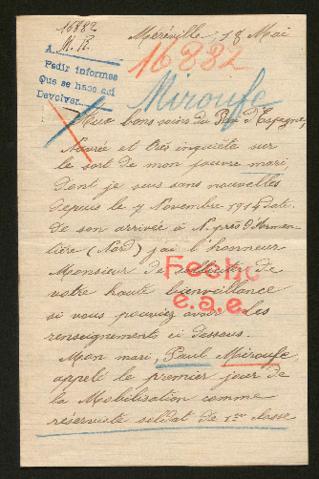 16882
M. R.
Méréville, 18 Mai
A
Pedir informes
Que se hace así
Devolver
16882
Miroufe
Aux bons soins du Roi d'Espagne,
Navrée et très inquiète sur
le sort de mon pauvre mari,
dont je suis sans nouvelles
depuis le 7 Novembre 1914 date
de son arrivée à N. près d'Armen-
tière (Nord) j'ai l'honneur
Monsieur de solliciter de
votre haute bienveillance
si vous pouviez avoir les
renseignements ci dessous.
Fecho
e.a.e.
Mon mari, Paul Miroufe,
appelé le premier jour de
la Mobilisation comme
réserviste soldat de 1ère classe